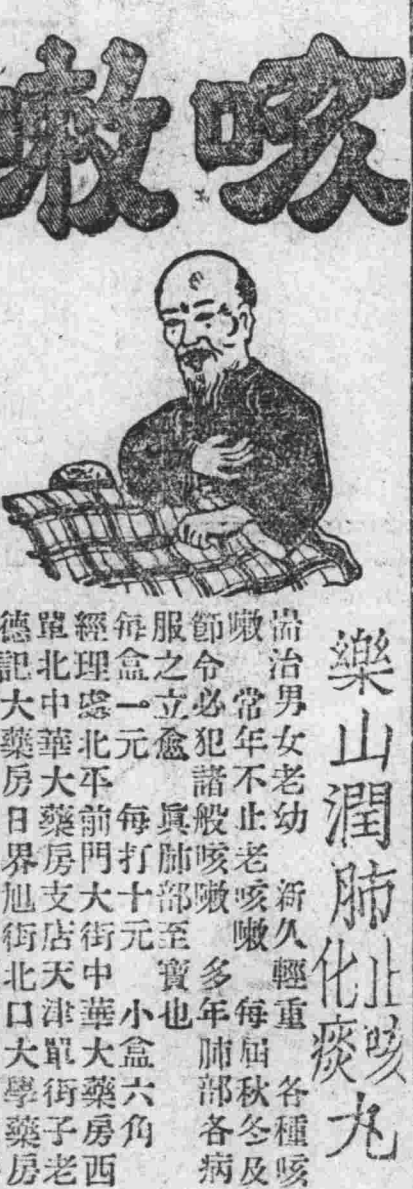 咳嗽
樂山潤肺止咳化痰丸
耑治男女老幼 新久輕重 各種咳
嗽 常年不止老咳嗽 每屆秋冬及
節令必犯諸般咳嗽 多年肺部各病
服之立愈 眞肺部至寶也
每盒一元 每打十元 小盒六角
經理處北平前門大街中華大藥房西
單北中華大藥房支店天津單街子老
德記大藥房日界旭街北口大學藥房